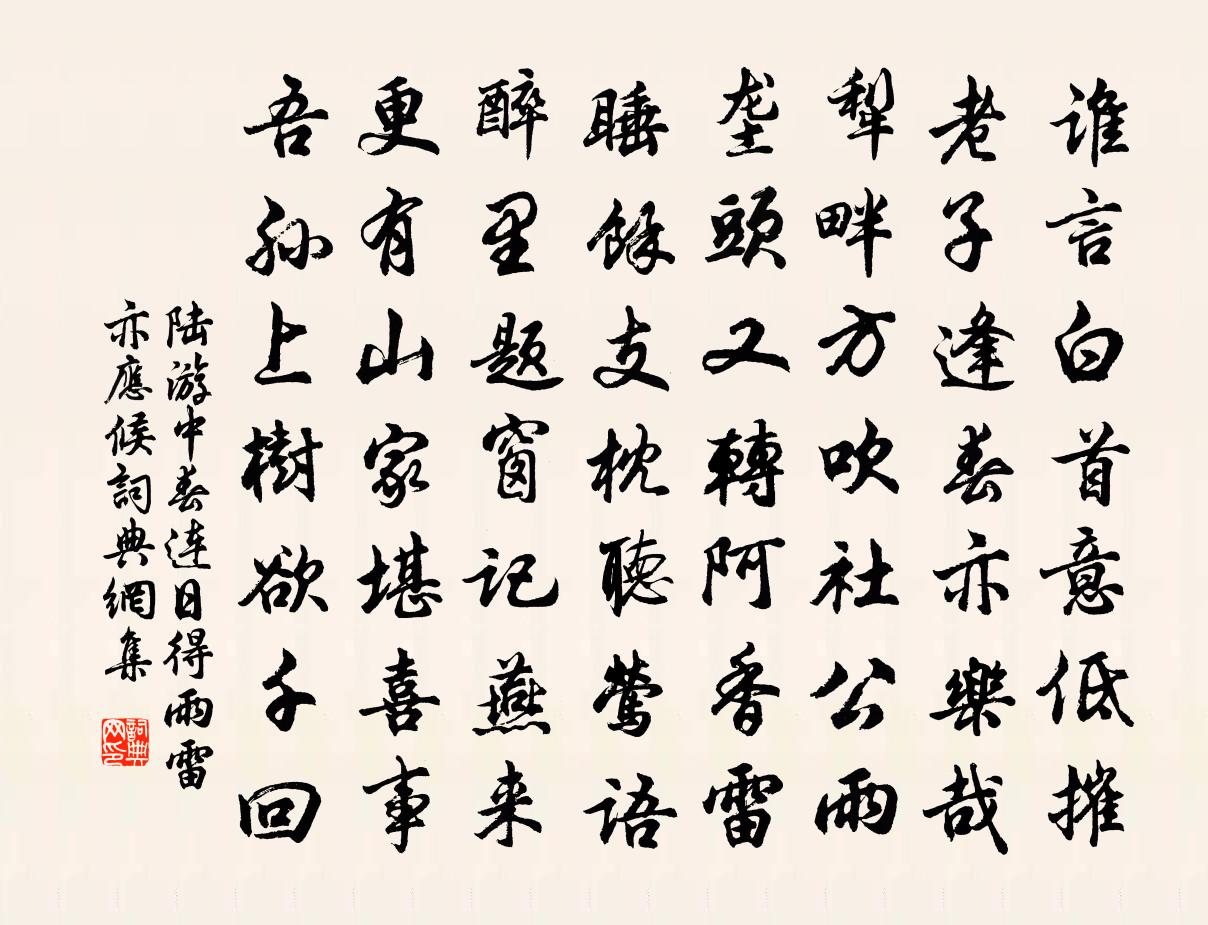 谁言白首意低摧
老子逢春亦樂哉
犁畔方吹社公雨
垄頭又轉阿香雷
睡餘支枕聽鶯語
醉里題窗記燕来
更有山家堪喜事
吾孙上樹欲千回
陆游中春连日得雨雷
亦應候詞典網集
詞典
网印